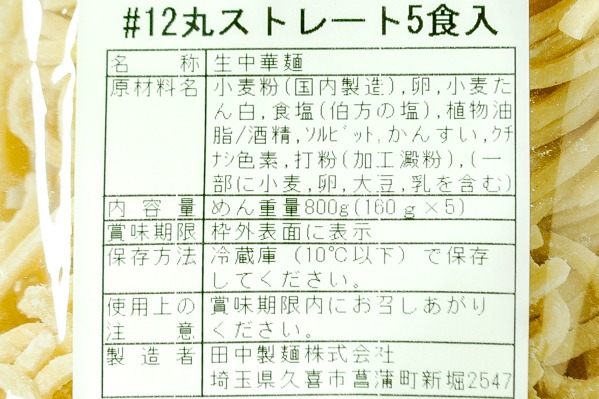 #12丸ストレート5食入
名 称 生中華麺
原材料名 小麦粉(国内製造),卵,小麦た
ん白,食塩(伯方の塩),植物油
脂/酒精,ｿﾙﾋﾞｯﾄ,かんすい,ｸﾁ
ﾅｼ色素,打粉(加工澱粉),(一
部に小麦,卵,大豆,乳を含む)
内 容 量 めん重量800g(160ｇ×5)
賞味期限 枠外表面に表示
保存方法 冷蔵庫（10℃以下）で保存
してください。
使用上の 賞味期限内にお召しあがり
注 意 ください。
製 造 者 田中製麺株式会社
埼玉県久喜市菖蒲町新堀2547